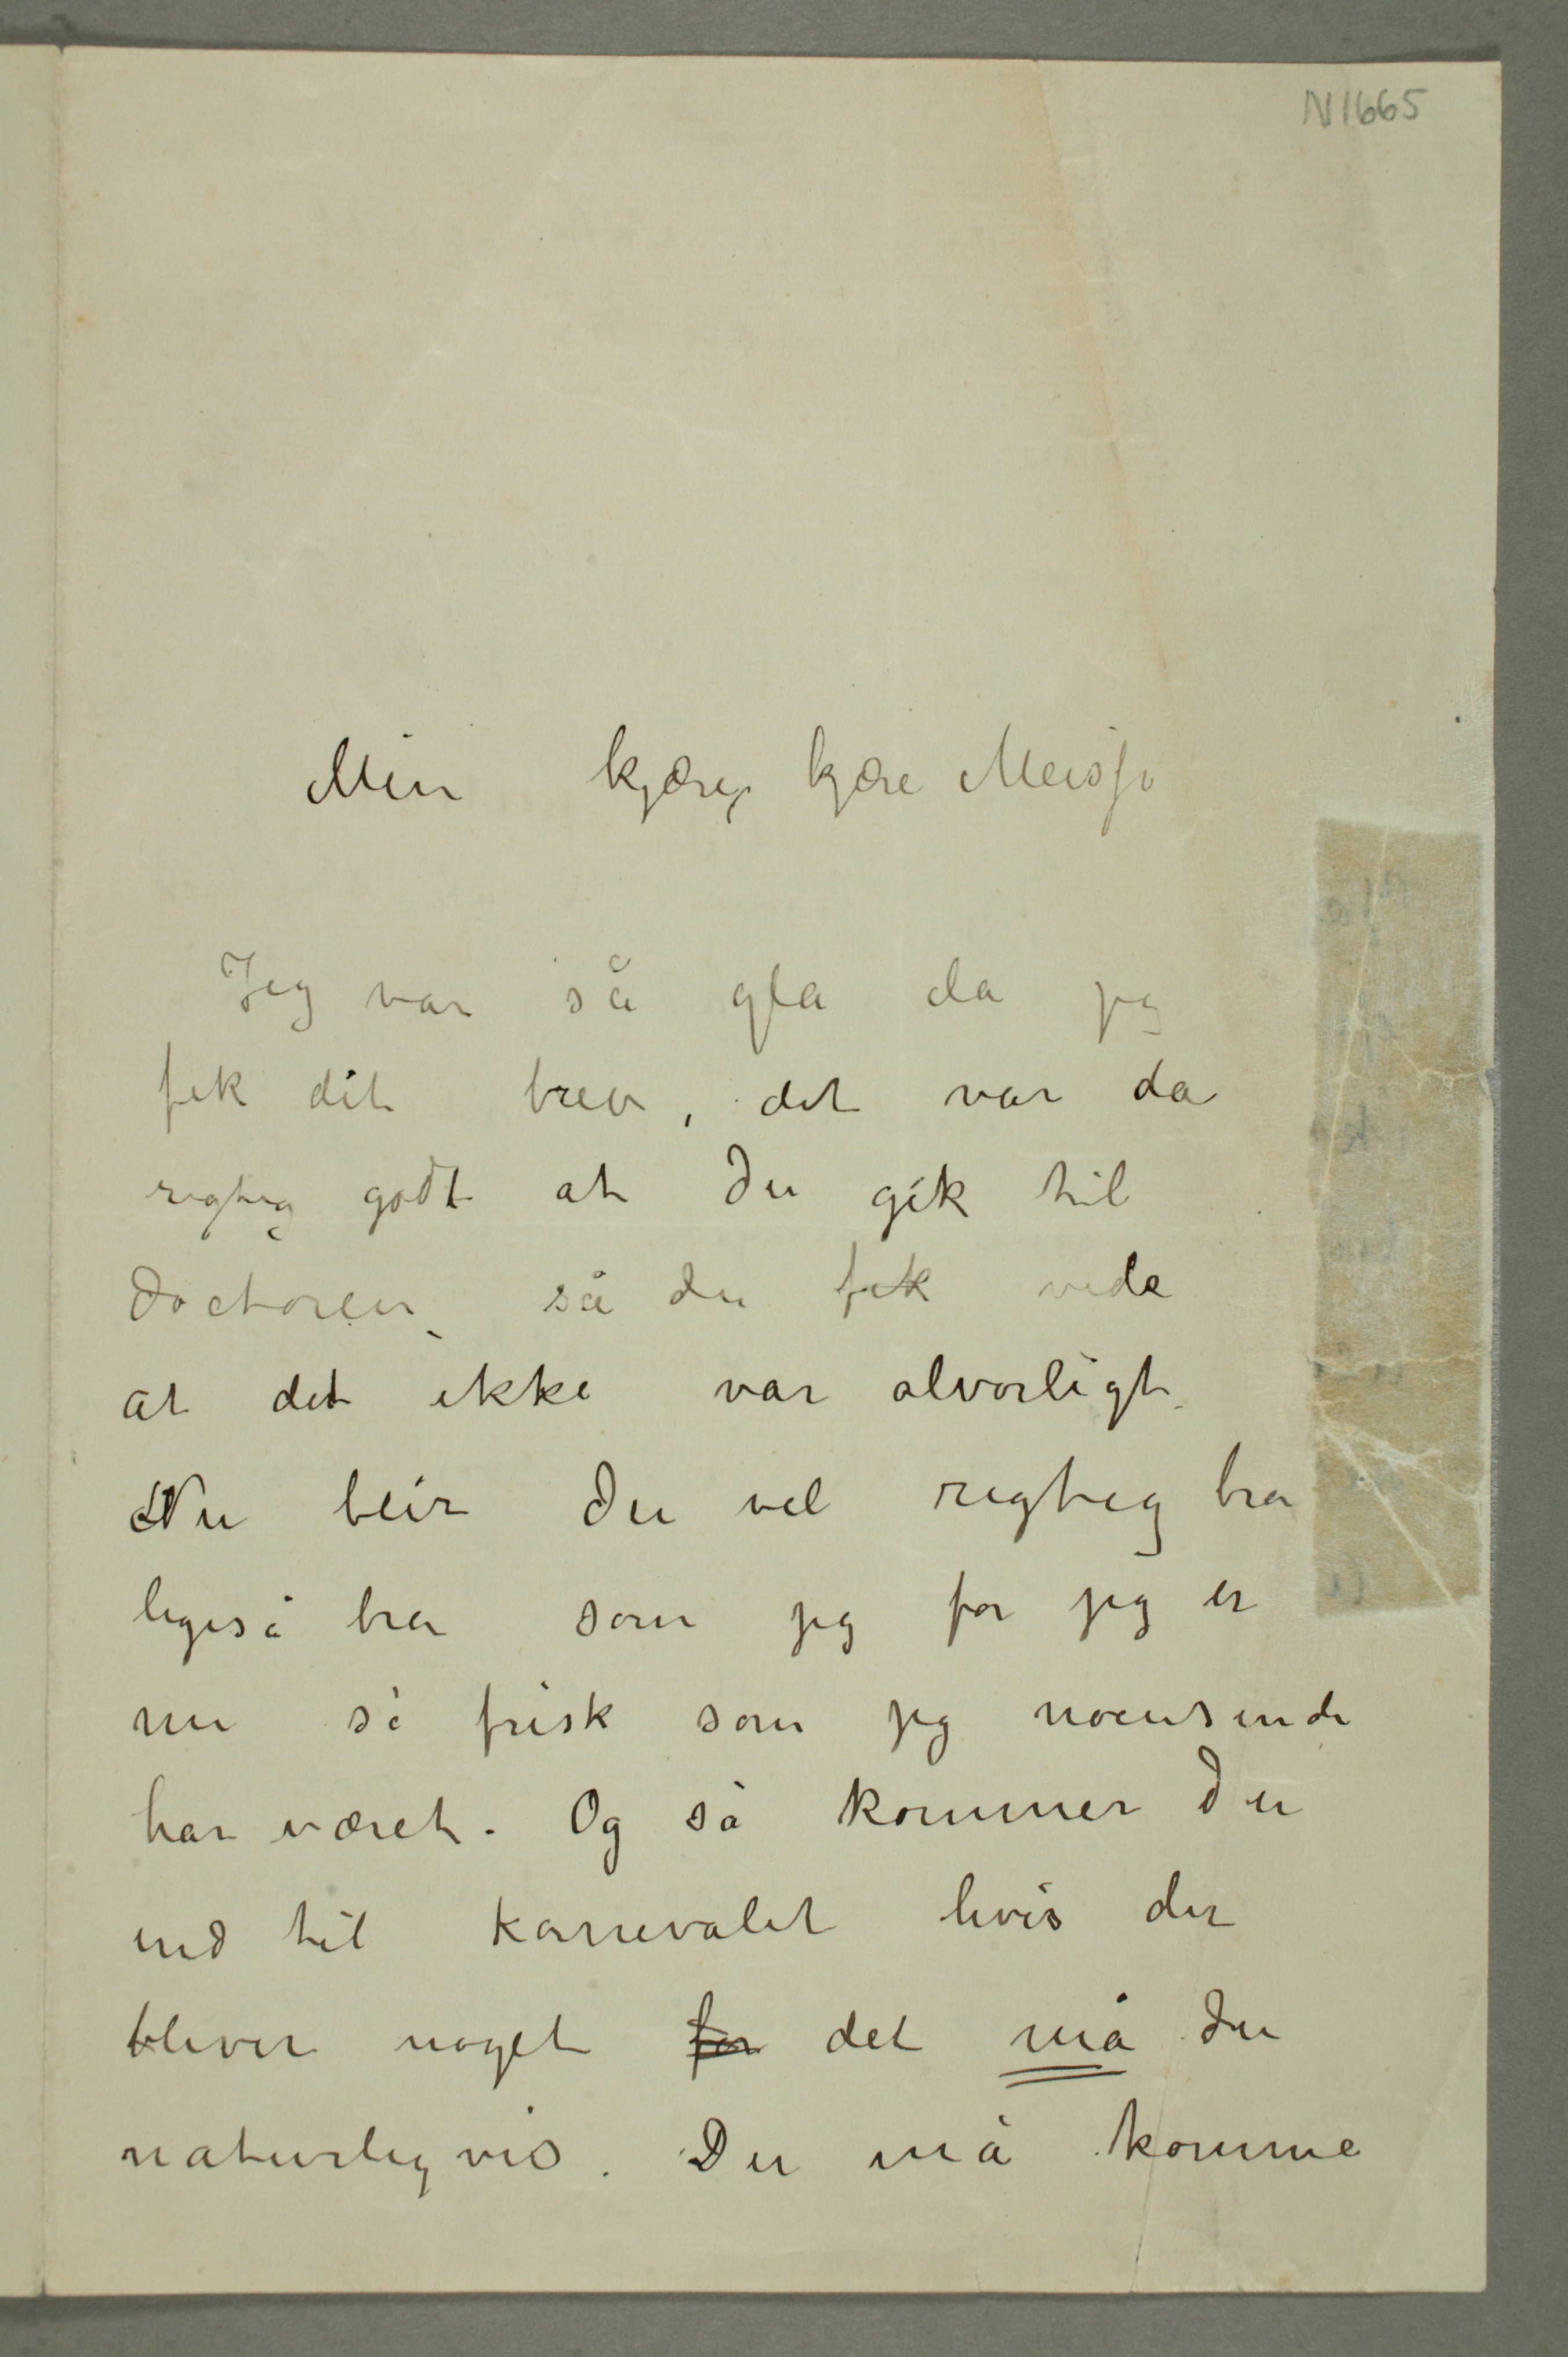 N1665
Min kjære, kjære Meisfo
Jeg var så gla da jeg
fik dit brev, det var da
rigtig godt at Du gik til
doctoren, så du fik vide
at det ikke var alvorligt.
Nu blir Du vel rigtig bra
ligeså bra som jeg for jeg er
nu så frisk som jeg noensinde
har været. Og så kommer Du
ind til karnevalet hvis der
bliver noget for det må Du
naturligvis. Du må komme